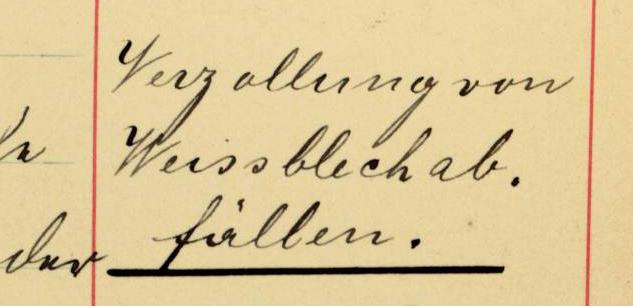 Verzollung von
Weissblechab.
der fällen.